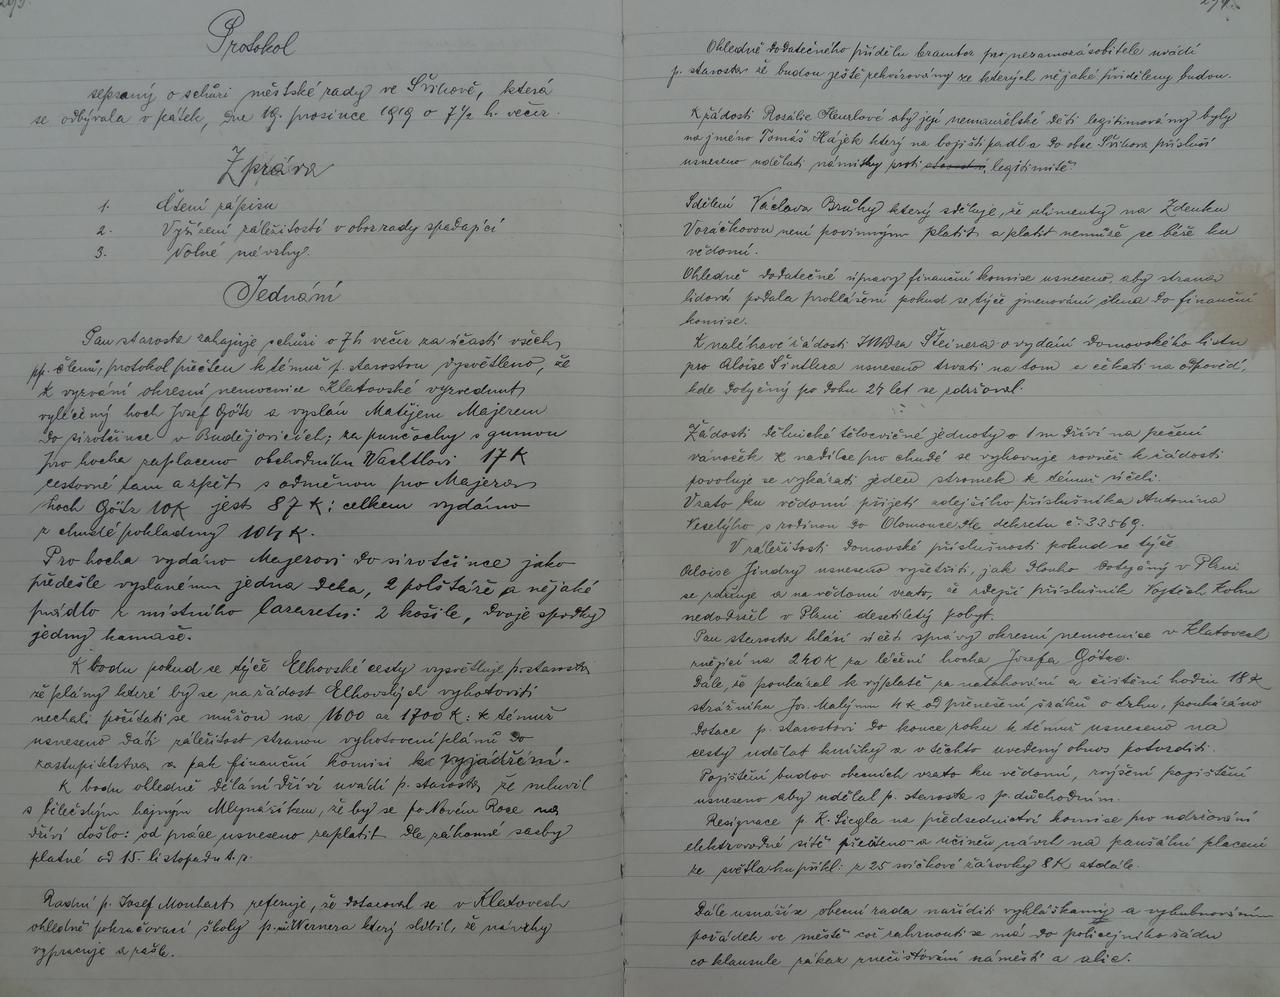 Protokol
sepsaný o schůzi městské rady ve Švihově, která
se odbývala v pátek, dne 19. prosince 1919 o 7 1/2 h. večer.
Zpráva
1. Čtení zápisu
2. Vyřízení záležitostí v obor rady spadající
3. Volné návrhy.
Jednání
Pan starosta zahajuje schůzi o 7 h večer za účasti všech
pp. členů, protokol přečten k témuž p. starostou vysvětleno, že
k vyzvání okresní nemocnice Klatovské vyzvednut
vyléčený hoch Josef Götz a vyslán Matějem Majerem
do sirotčince v Budějovicích; za punčochy s gumou
pro hocha zaplaceno obchodníku Wachtlovi 17 K
cestovné tam a zpět s odměnou pro Majera
hoch Götz 10K jest 87 K; celkem vydáno
z chudé pokladny 104 K.
Pro hocha vydáno Majerovi do sirotčince jako
předešle vyslanému jedna deka, 2 polštáře a nějaké
prádlo z místního lazaretu: 2 košile, dvoje spodky
jedny kamaše.
K bodu pokud se týče Elhovské cesty vysvětluje p. starosta
že plány které by se na žádost Elhovských vyhotoviti
nechali počítati se můžou na 1600 až 1700 K: k témuž
usneseno dáti záležitost stranou vyhotovení plánů do
zastupitelstva a pak finanční komisi ku vyjádření.
K bodu ohledně dělání dříví uvádí p. starosta, že mluvil
s hajným Mlynaříkem, že by se po Novém Roce na
dříví došlo: od práce usneseno zaplatit dle zákonné sazby
platné od 15. listopadu t. r.
Radní p. Josef Monhart referuje, že dotazoval se v Klatovech
ohledně pokračovací školy p. Wernera který slíbil, že návrhy
vypracuje a zašle.
Ohledně dodatečného přídělu brambor pro nezamozásobitele uvádí
p. starosta že budou ještě rekvirovány ze kterých nějaké přiděleny budou.
K žádosti Rosalie aby její nemanželské děti legitimovány byly
na jméno Tomáš Hájek který na bojišti padl a do obce Švihova přísluší
usneseno udělati námitky proti legitimitě.
Sdělení Václava Bruhy který sděluje, že alimenty na Zdenku
Voráčkovou není povinným platit a platit nemůže se béře ku
vědomí.
Ohledně dodatečné úpravy finanční komise usneseno, aby strana
lidová podala prohlášení pokud se týče jmenování člena do finanční
komise.
K naléhavé žádosti JUDra Steinera o vydání domovského listu
pro Aloise Šintlera usneseno trvati na tom a čekati na odpověď,
kde dotyčný po dobu 24 let se zdržoval.
Žádosti dělnické tělocvičné jednoty o 1 m dříví na pečení
vánoček k nadílce pro chudé se vyhovuje rovněž k žádosti
povoluje se vykázati jeden stromek k témuž účeli.
Vzato ku vědomí přijetí zdejšího příslušníka Antonína
Veselýho s rodinou do Olomouce dle dekretu č. 33569.
V záležitosti domovské příslušnosti pokud se týče
Aloise Jindry usneseno vyšetřiti, jak dlouho dotyčný v Plzni
se zdržuje a na vědomí vzato, že zdejší příslušník Vojtěch Kohn
nedodržel v Plzni desetiletý pobyt.
Pan starosta hlásí účet správy okresní nemocnice v Klatovech
znějící na 240 K za léčení hocha Josefa Götze.
Dále, že poukázal k výplatě za natahování a čistění hodin 18 K
strážníku Jos. Malýmu 4 K od přenešení o trhu, poukázáno
dotace p. starostovi do konce roku k témuž usneseno na
cesty udělat knížky a v těchto uvedený obnos potvrditi.
Pojištění budov obecních vzato ku vědomí, zvýšení pojištění
usneseno aby udělal p. starosta s p. důchodním.
Resignace p. K. Siegla na předsednictví komise pro udržování
elektrovodné sítě přečteno a učiněn návrh na paušální placení
ze světla ku příkl: z 25 svíčkové žárovky 8 K atd.
Dále usnáší se obecní rada naříditi vyhláškami a vybubnováním
pořádek ve městě což zahrnouti se má do policejního řádu
co klausule zákaz znečisťování náměstí a ulic.